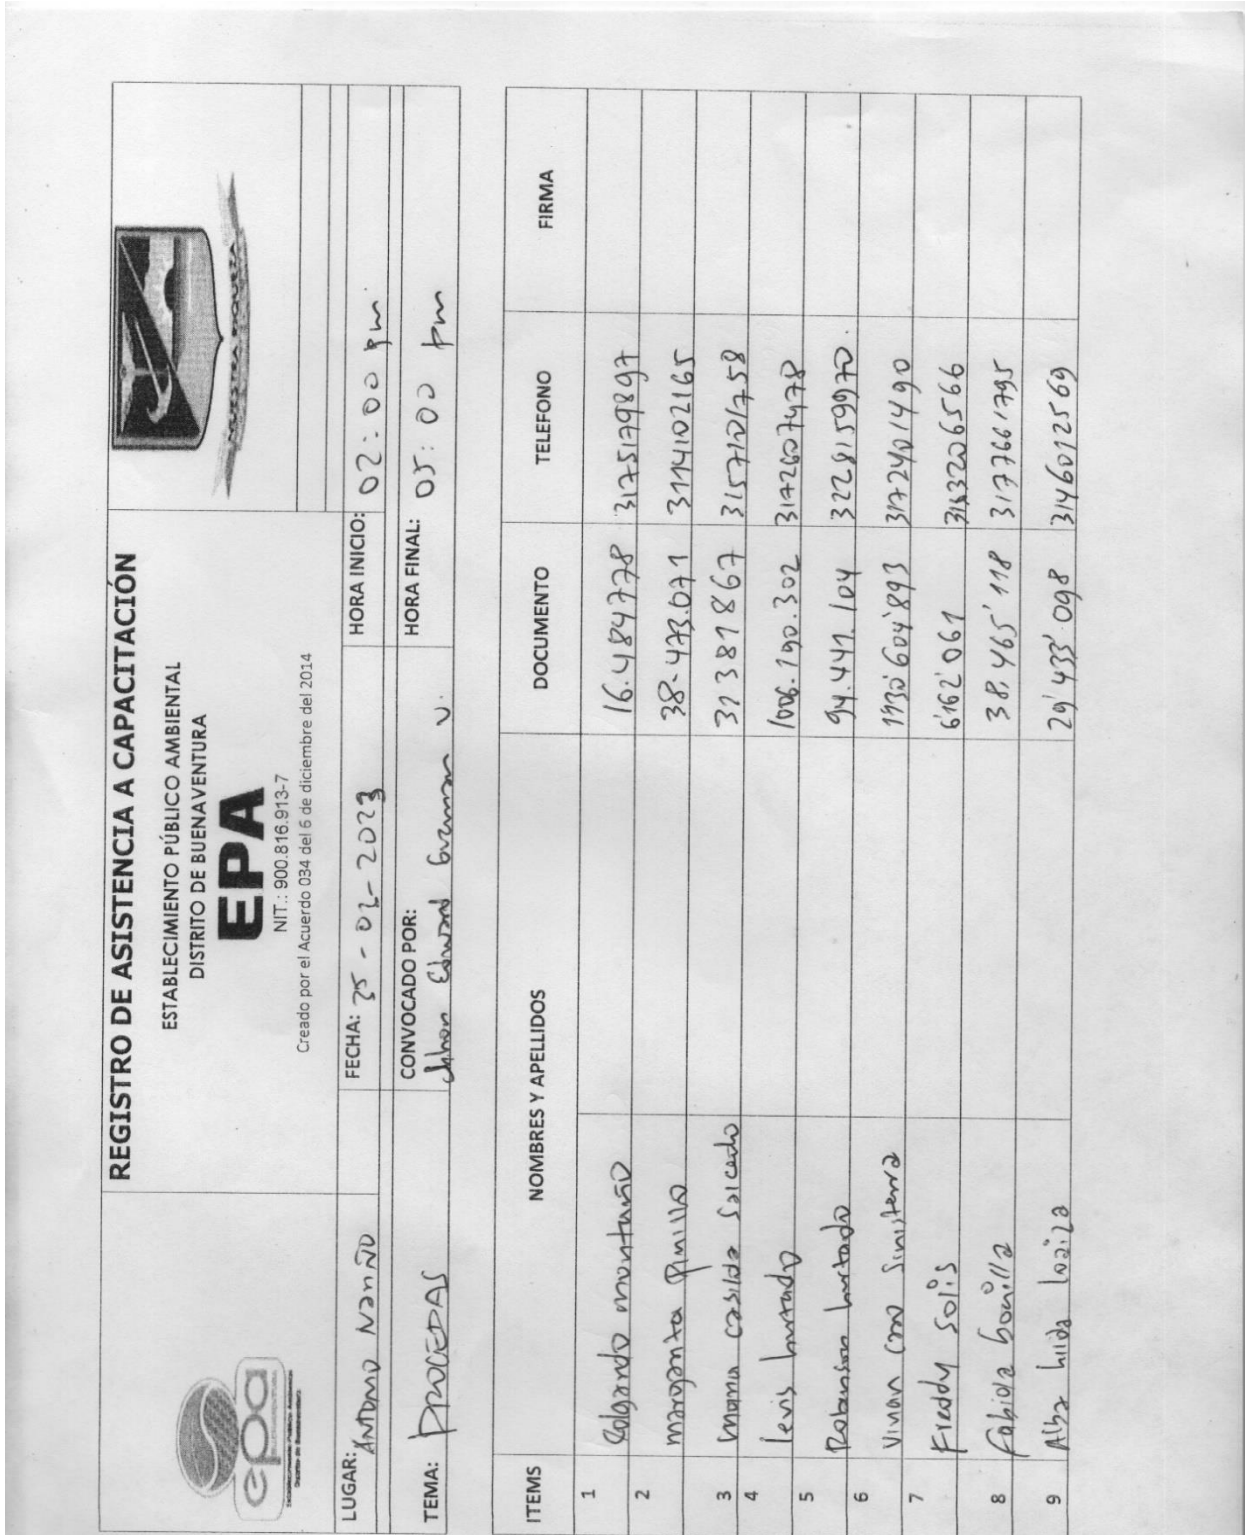 REGISTRO DE ASISTENCIA A CAPACITACIÓN
ESTABLECIMIENTO PÚBLICO AMBIENTAL
DISTRITO DE BUENAVENTURA
EPA
NIT.: 900.816.913-7
Creado por el Acuerdo 034 del 6 de diciembre del 2014
epa
LUGAR: ANTONIO NARIÑO FECHA: 25-02-2023 HORA INICIO: 02:00 pm
TEMA: PROCEDAS CONVOCADO POR: Jahon Edward V. HORA FINAL: 05:00 pm
ITEMS NOMBRES Y APELLIDOS DOCUMENTO TELEFONO FIRMA
1 montaño 16.484778 3175179897
2 margarita Pinillo 38-473.071 3114102165
3 maria casilda Salcedo 31381867 3157101758
4 Levis hurtado 1006.190.302 3172607478
5 Robinson hurtado 94.441.104 3228159970
6 Vivian caro Sinisterra 1130'604'893 3172401490
7 Freddy Solis 6'162'061
8 Fabiola bonilla 38.465'118 3177661795
9 Alba loaiza 29'433'098 3146012569